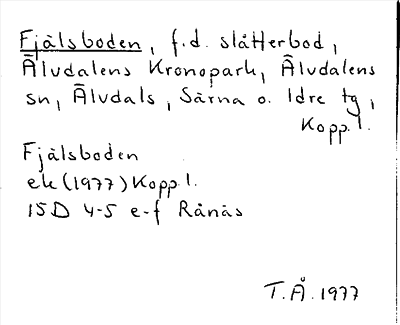 Fjälsboden, f.d. slåtterbod,
Älvdalens Kronopark, Älvdalens
sn, Älvdals, Särna o. Idre tg,
Kopp. l.
Fjälsboden
ek (1977) Kopp. l.
15D 4-5 e-f Rånäs
T.Å. 1977